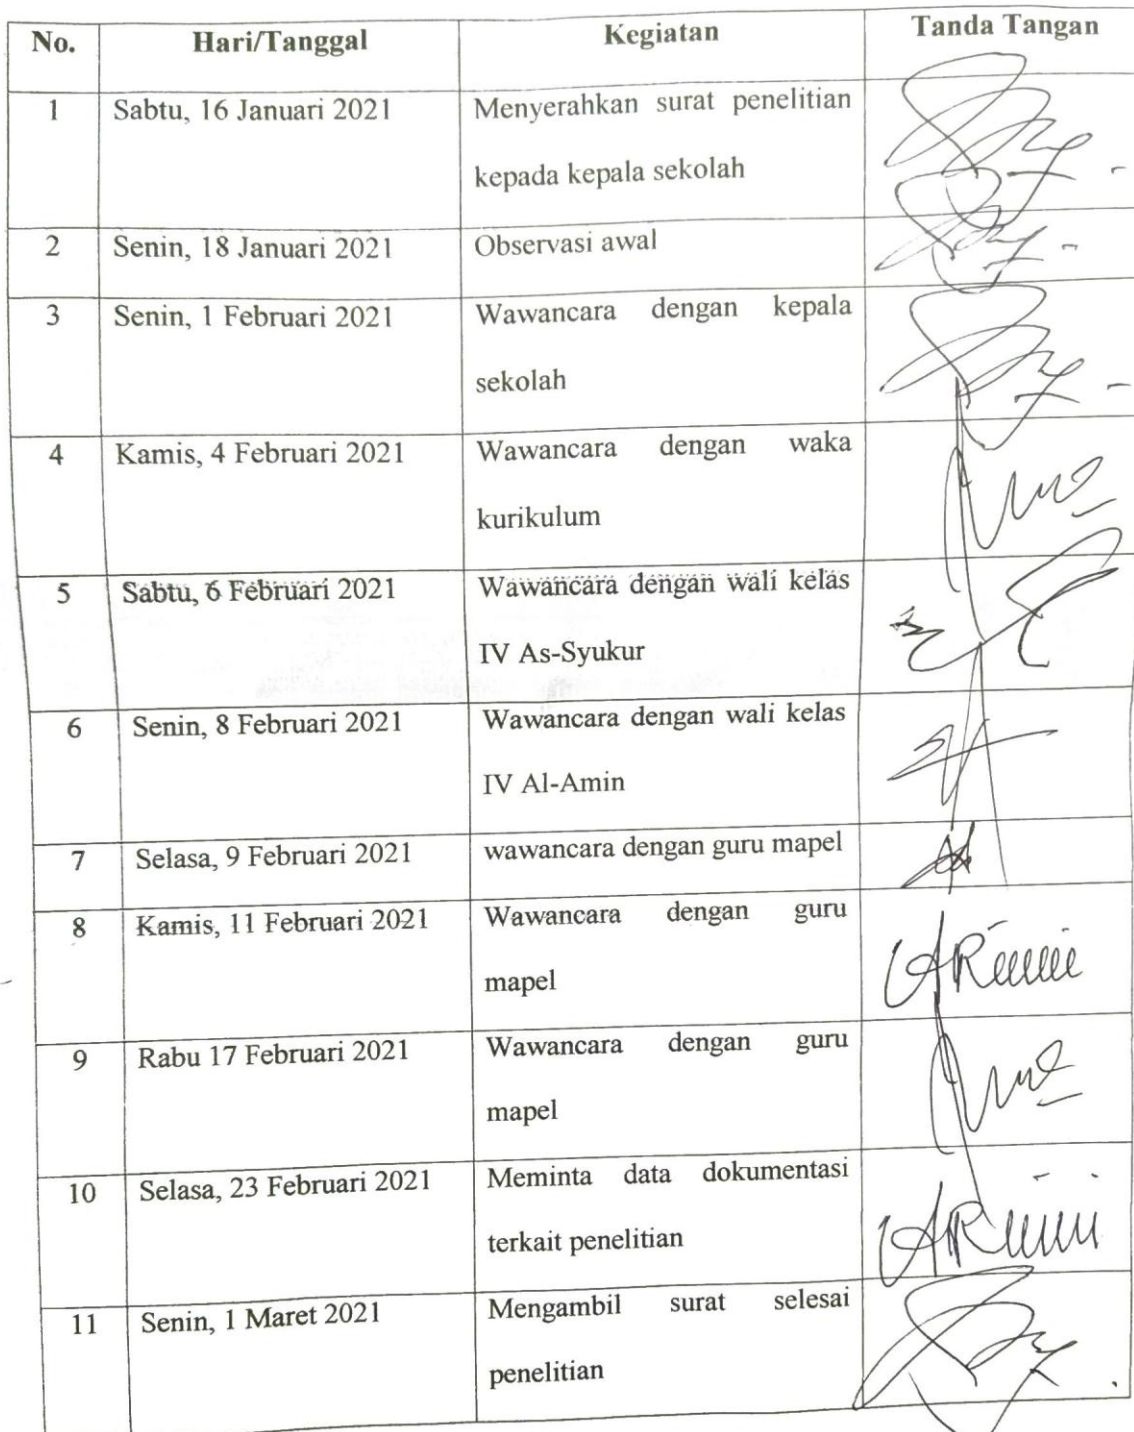 No. Hari/Tanggal Kegiatan Tanda Tangan
1 Sabtu, 16 Januari 2021 Menyerahkan surat penelitian
kepada kepala sekolah
2 Senin, 18 Januari 2021 Observasi awal
3 Senin, 1 Februari 2021 Wawancara dengan kepala
sekolah
4 Kamis, 4 Februari 2021 Wawancara dengan waka
kurikulum
5 Sabtu, 6 Februari 2021 Wawancara dengan wali kelas
IV As-Syukur
6 Senin, 8 Februari 2021 Wawancara dengan wali kelas
IV Al-Amin
7 Selasa, 9 Februari 2021 wawancara dengan guru mapel
8 Kamis, 11 Februari 2021 Wawancara dengan guru
mapel
9 Rabu 17 Februari 2021 Wawancara dengan guru
mapel
10 Selasa, 23 Februari 2021 Meminta data dokumentasi
terkait penelitian
11 Senin, 1 Maret 2021 Mengambil surat selesai
penelitian